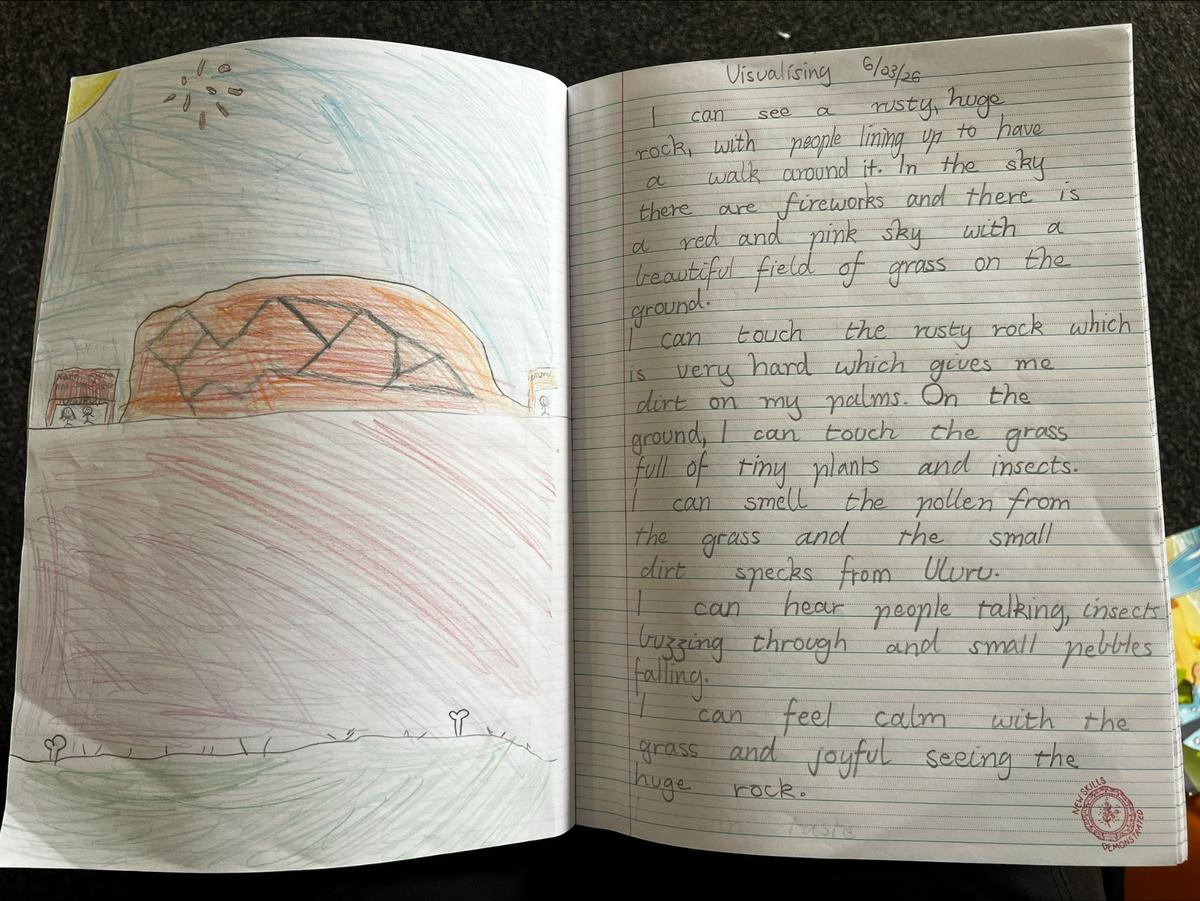 Visualising 6/03/26
I can see a rusty, huge
rock, with people lining up to have
a walk around it. In the sky
there are fireworks and there is
a red and pink sky with a
beautiful field of grass on the
ground.
I can touch the rusty rock which
is very hard which gives me
dirt on my palms. On the
ground, I can touch the grass
full of tiny plants and insects.
I can smell the pollen from
the grass and the small
dirt specks from Uluru.
I can hear people talking, insects
buzzing through and small pebbles
falling.
I can feel calm with the
grass and joyful seeing the
huge rock.
taste
NEW SKILLS
DEMONSTRATED